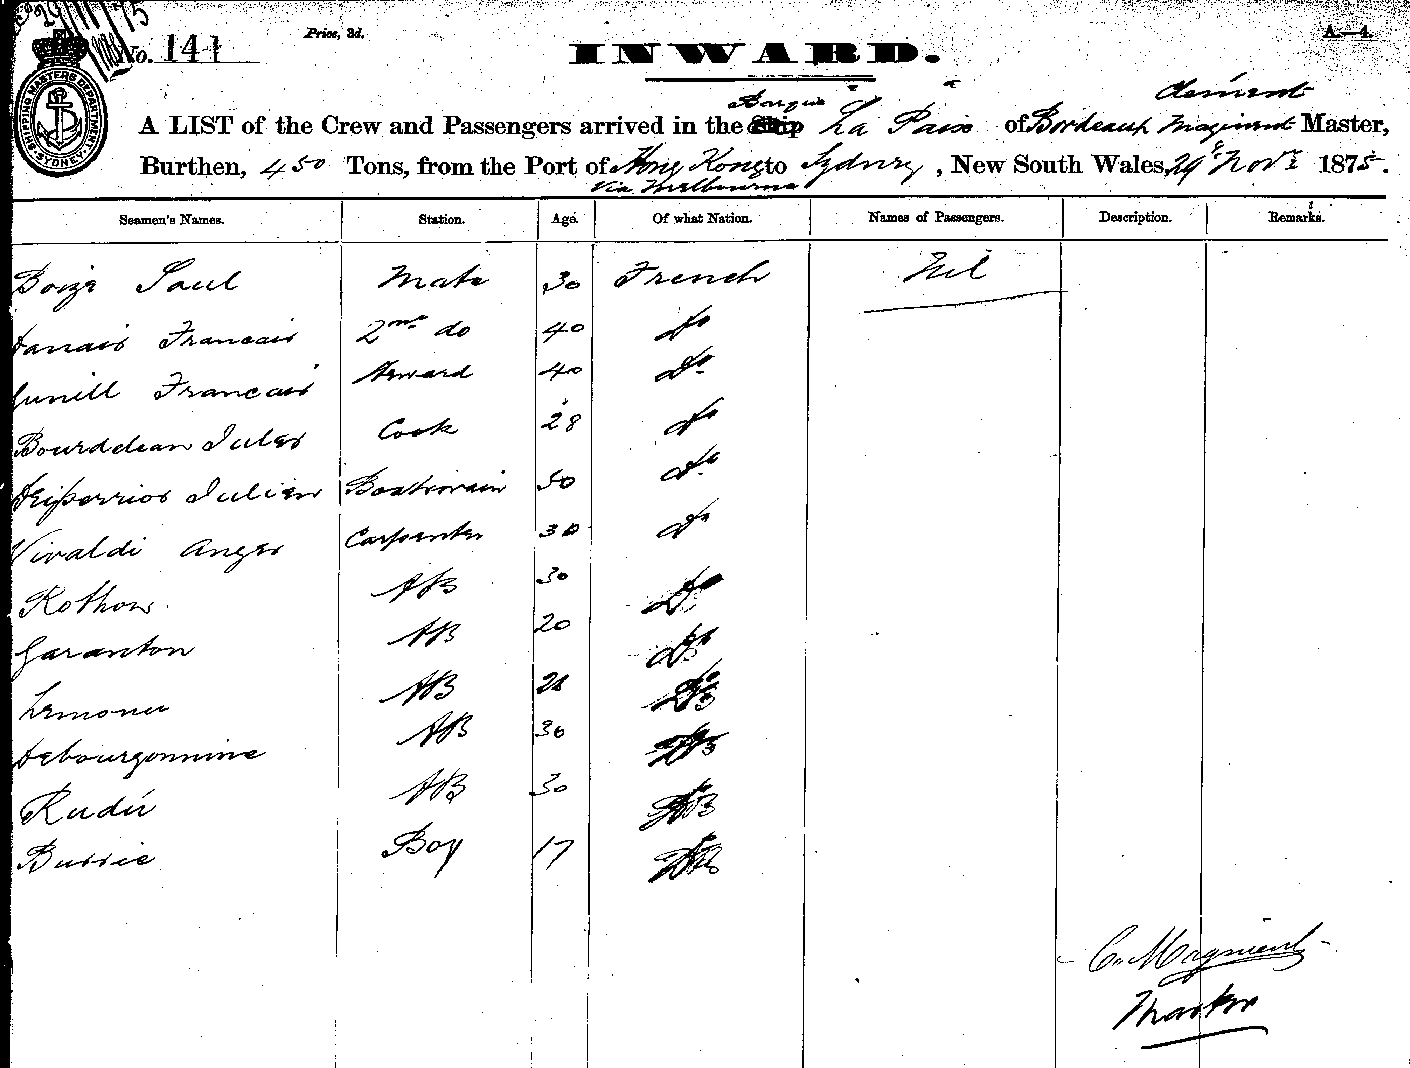 29/11/75
No. 141
Price, 3d.
A.—4.
INWARD.
SHIPPING MASTERS DEPARTMENT SYDNEY
Barque Clement
A LIST of the Crew and Passengers arrived in the Ship La Paix of Bordeaux Magnient Master,
Burthen, 450 Tons, from the Port of Hong Kong to Sydney, New South Wales, 29th Novr 1875.
Via Melbourne
Seamen's Names. Station. Age. Of what Nation. Names of Passengers. Description. Remarks.
Paul Mate 30 French Nil
Francais 2nd do 40 Do
Francais Steward 40 Do
Jules Cook 28 Do
Julien Boatswain 50 Do
Vivaldi Anges Carpenter 30 Do
Rothow AB 30 Do
Garanton AB 20 Do
Lemoner AB Do
Debourgonnine AB 30 Do
AB 30 Do
Bussie Boy 17 Do
C. Magnient
Master